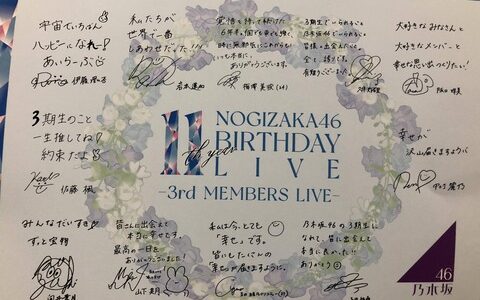 宇宙でいちばん
ハッピーになれー!
あいらーぶ
伊藤理々杏
私たちが
世界で一番
しあわせだったー!!
岩本蓮加
本当に
ありがとうございます。
梅澤美波
3期生でいられること
乃木坂46でいられること
皆様と出会えたこと
全て誇りです。
有難うございました
久保史緒里
大好きなみなさんと
大好きなメンバーと
幸せな思い出つくりたい!
阪口珠美
3期生のこと
一生推してね!
約束だよ
佐藤楓
11th year
NOGIZAKA46
BIRTHDAY
LIVE
-3rd MEMBERS LIVE-
幸せが
沢山届きますように
中村麗乃
みんなだいすき
ずっと宝物
向井葉月
皆さんに出会えて
本当に幸せです。
最高の一日を
ありがとうございました!
山下美月
私は今、とても
"幸せ"です。
皆にもたくさんの
幸せが届きますように。
乃木坂46の3期生に
なれて、皆に出会えて
本当に良かった!!
ありがとう
46
乃木坂